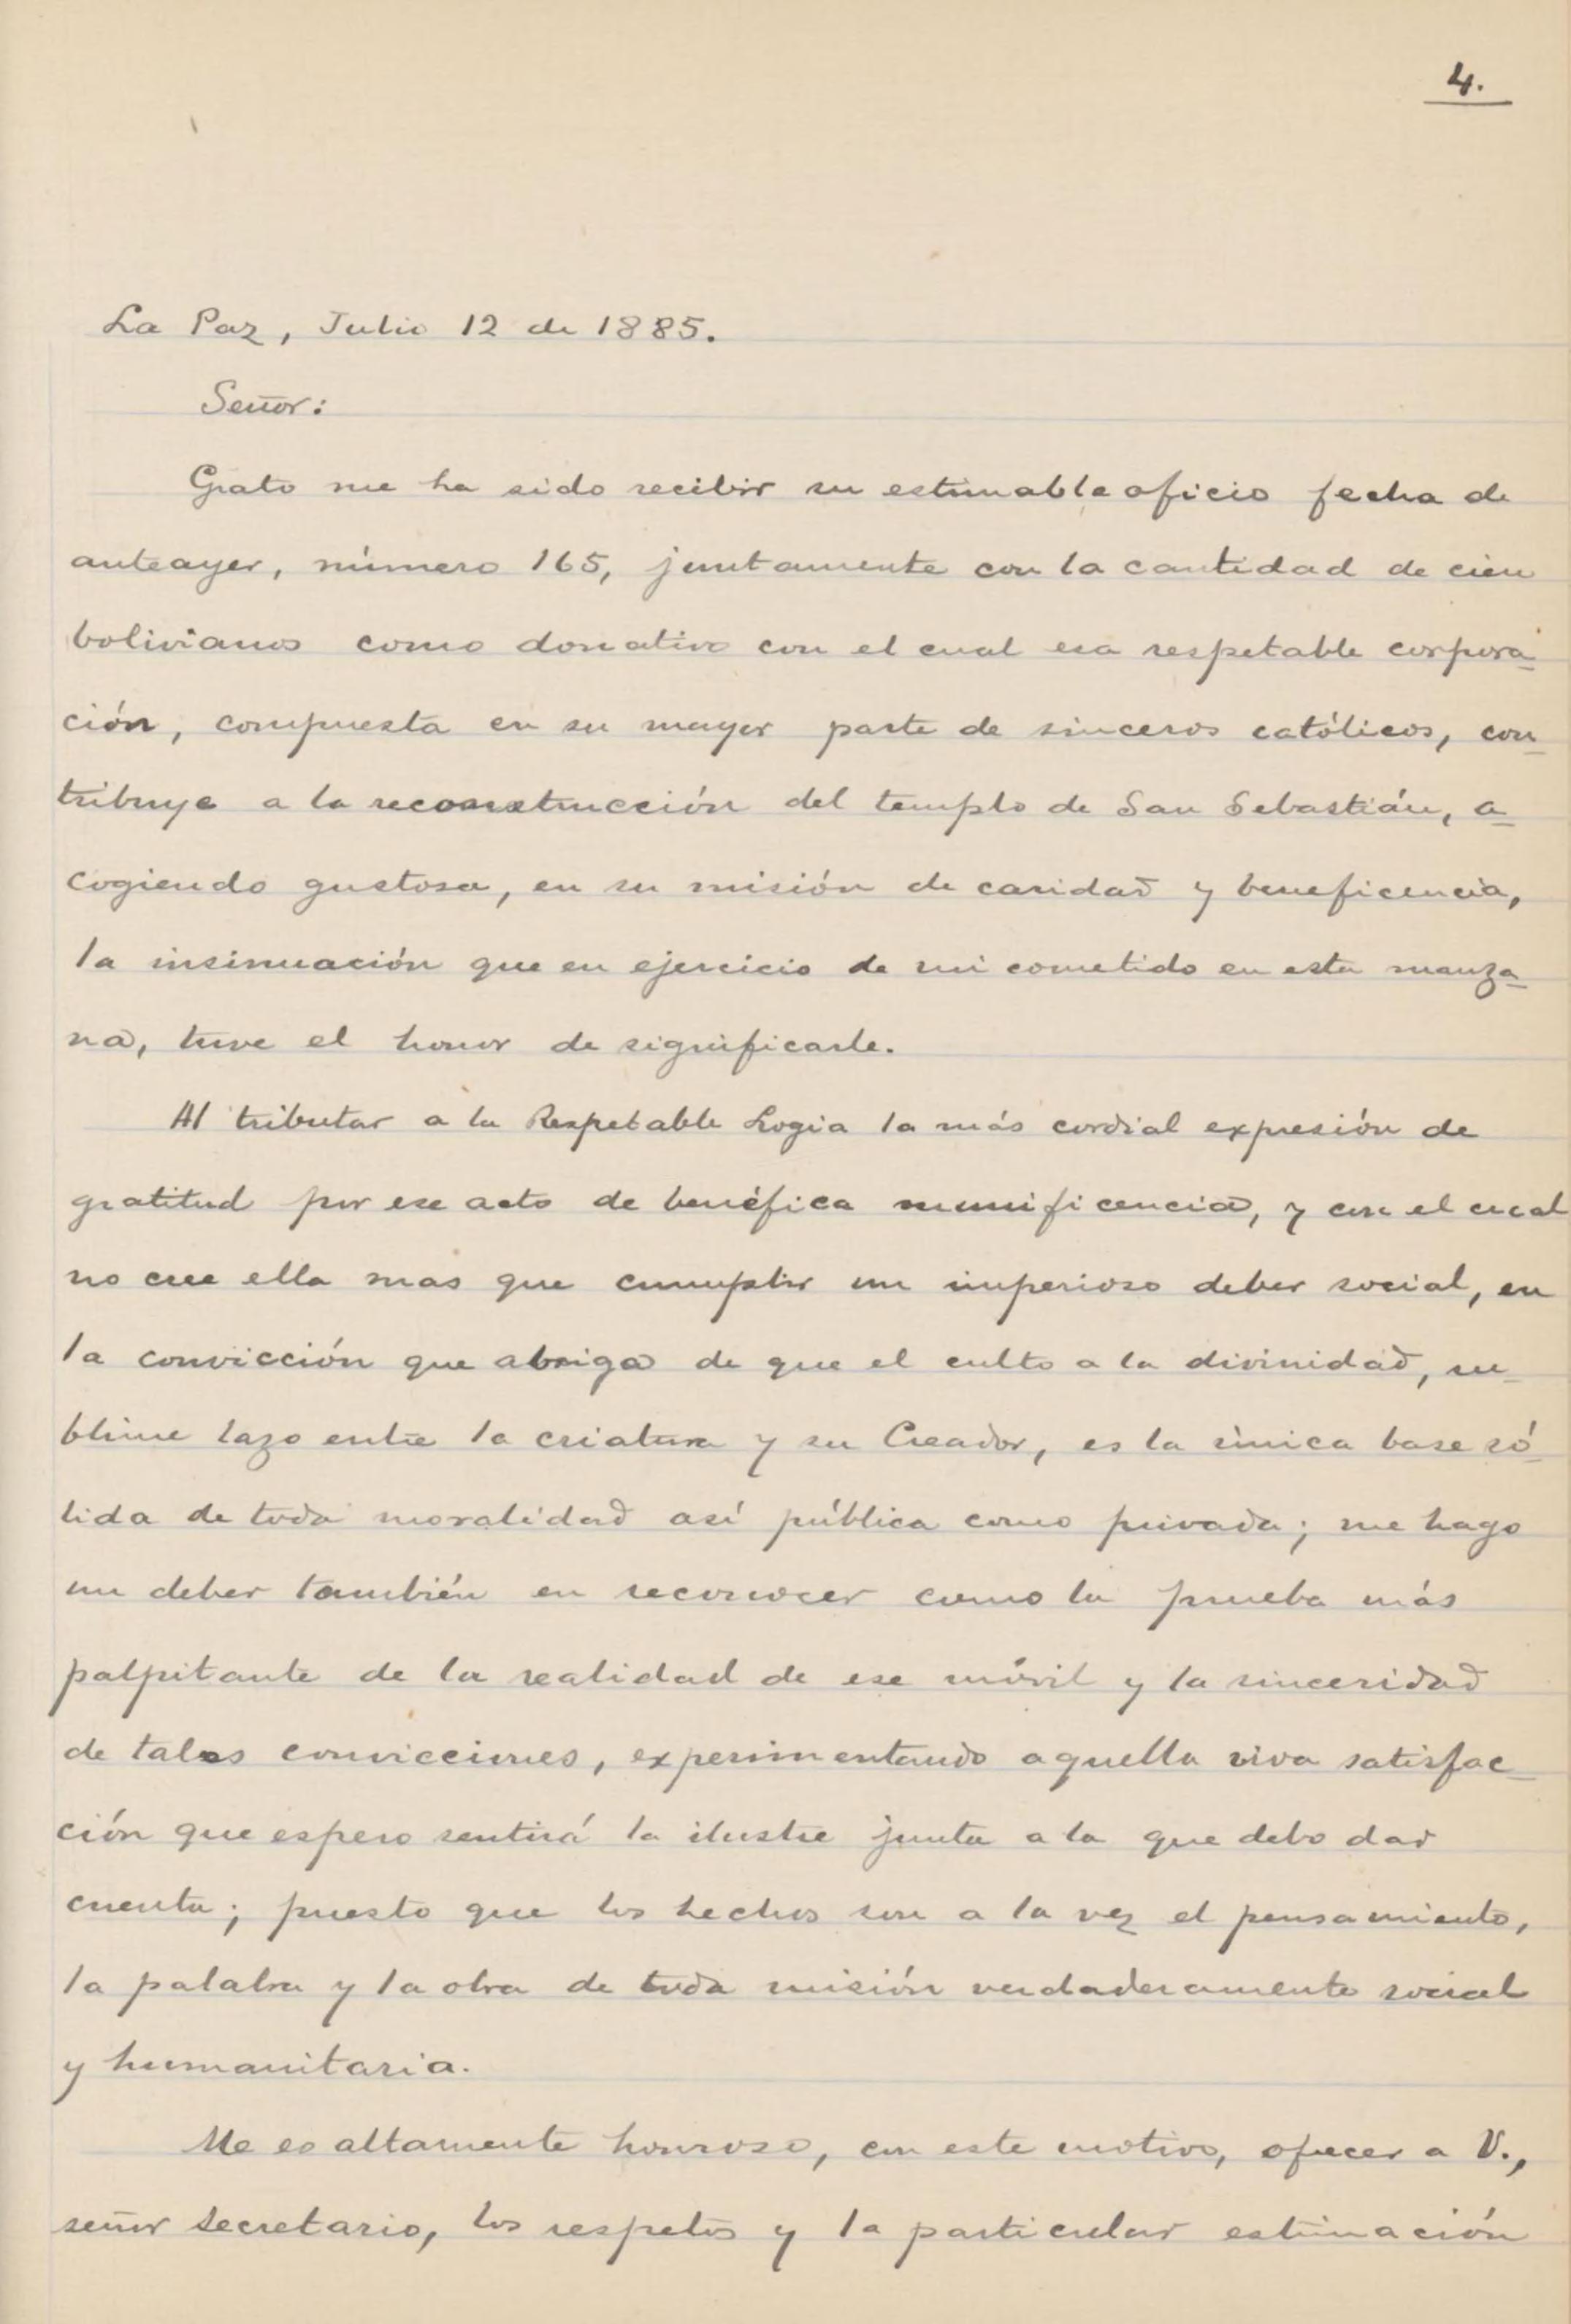 4.
La Paz, Julio 12 de 1885.
Señor:
Grato me ha sido recibir su estimable oficio fecha de
anteayer, número 165, juntamente con la cantidad de cien
bolivianos como donativo con el cual esa respetable corpora-
ción, compuesta en su mayor parte de sinceros católicos, con-
tribuye a la reconstrucción del templo de San Sebastián, a-
cogiendo gustosa, en su misión de caridad y beneficencia,
la insinuación que en ejercicio de mi cometido en esta manza-
na, tuve el honor de significarle.
Al tributar a la Respetable Logia la más cordial expresión de
gratitud por ese acto de benéfica munificencia, y con el cual
no cree ella mas que cumplir un imperioso deber social, en
la convicción que abriga de que el culto a la divinidad, su-
blime lazo entre la criatura y su Creador, es la única base só-
lida de toda moralidad así pública como privada; me hago
un deber también en reconocer como la prueba más
palpitante de la realidad de ese móvil y la sinceridad
de tales convicciones, experimentando aquella viva satisfac-
ción que espero sentirá la ilustre junta a la que debo dar
cuenta; puesto que los hechos son a la vez el pensamiento,
la palabra y la obra de toda misión verdaderamente social
y humanitaria.
Me es altamente honroso, con este motivo, ofrecer a V.,
señor secretario, los respetos y la particular estimación